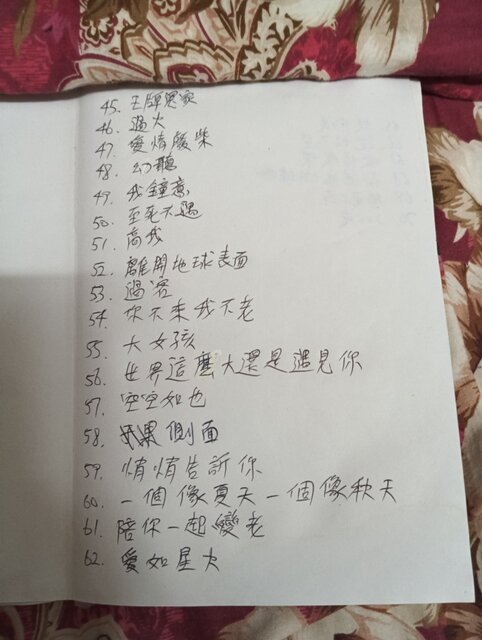 45. 王牌冤家
46. 過火
47. 愛情廢柴
48. 幻聽
49. 我鐘意
50. 至死不遇
51. 高我
52. 離開地球表面
53. 過客
54. 你不來我不老
55. 大女孩
56. 世界這麼大還是遇見你
57. 空空如也
58. 側面
59. 悄悄告訴你
60. 一個像夏天一個像秋天
61. 陪你一起變老
62. 愛如星火